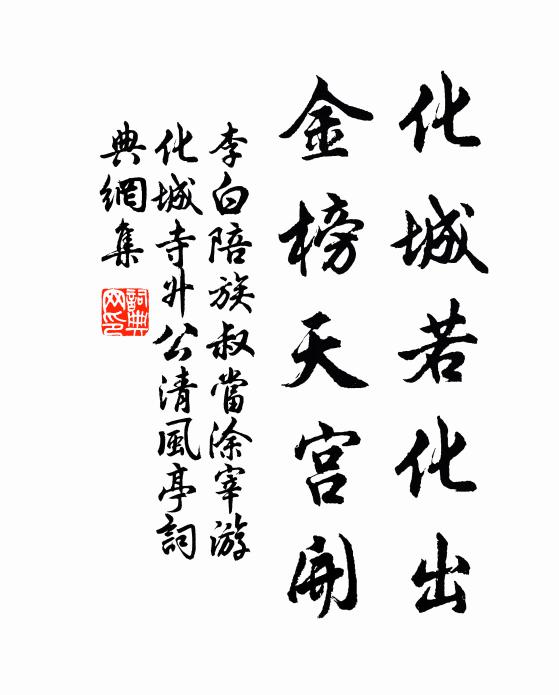 化城若化出
金榜天宮開
李白陪族叔當涂宰游
化城寺升公清風亭詞
典網集
詞典網印